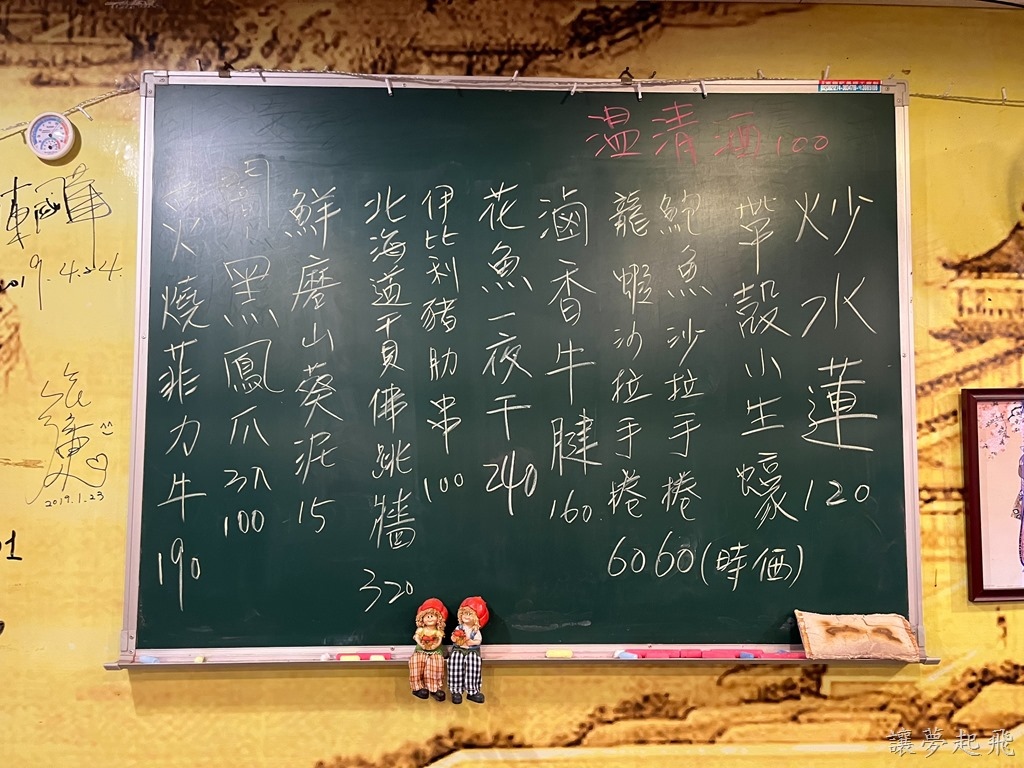 温清酒100
炒水蓮120
帶殼小生蠔(時価)
鮑魚沙拉手捲60
龍蝦沙拉手捲60
滷香牛腱160
花魚一夜干240
伊比利豬肋串100
北海道干貝佛跳牆320
鮮磨山葵泥15
黑鳳爪3入100
火燒菲力牛190
2019.4.24.
2019.1.23
讓夢起飛